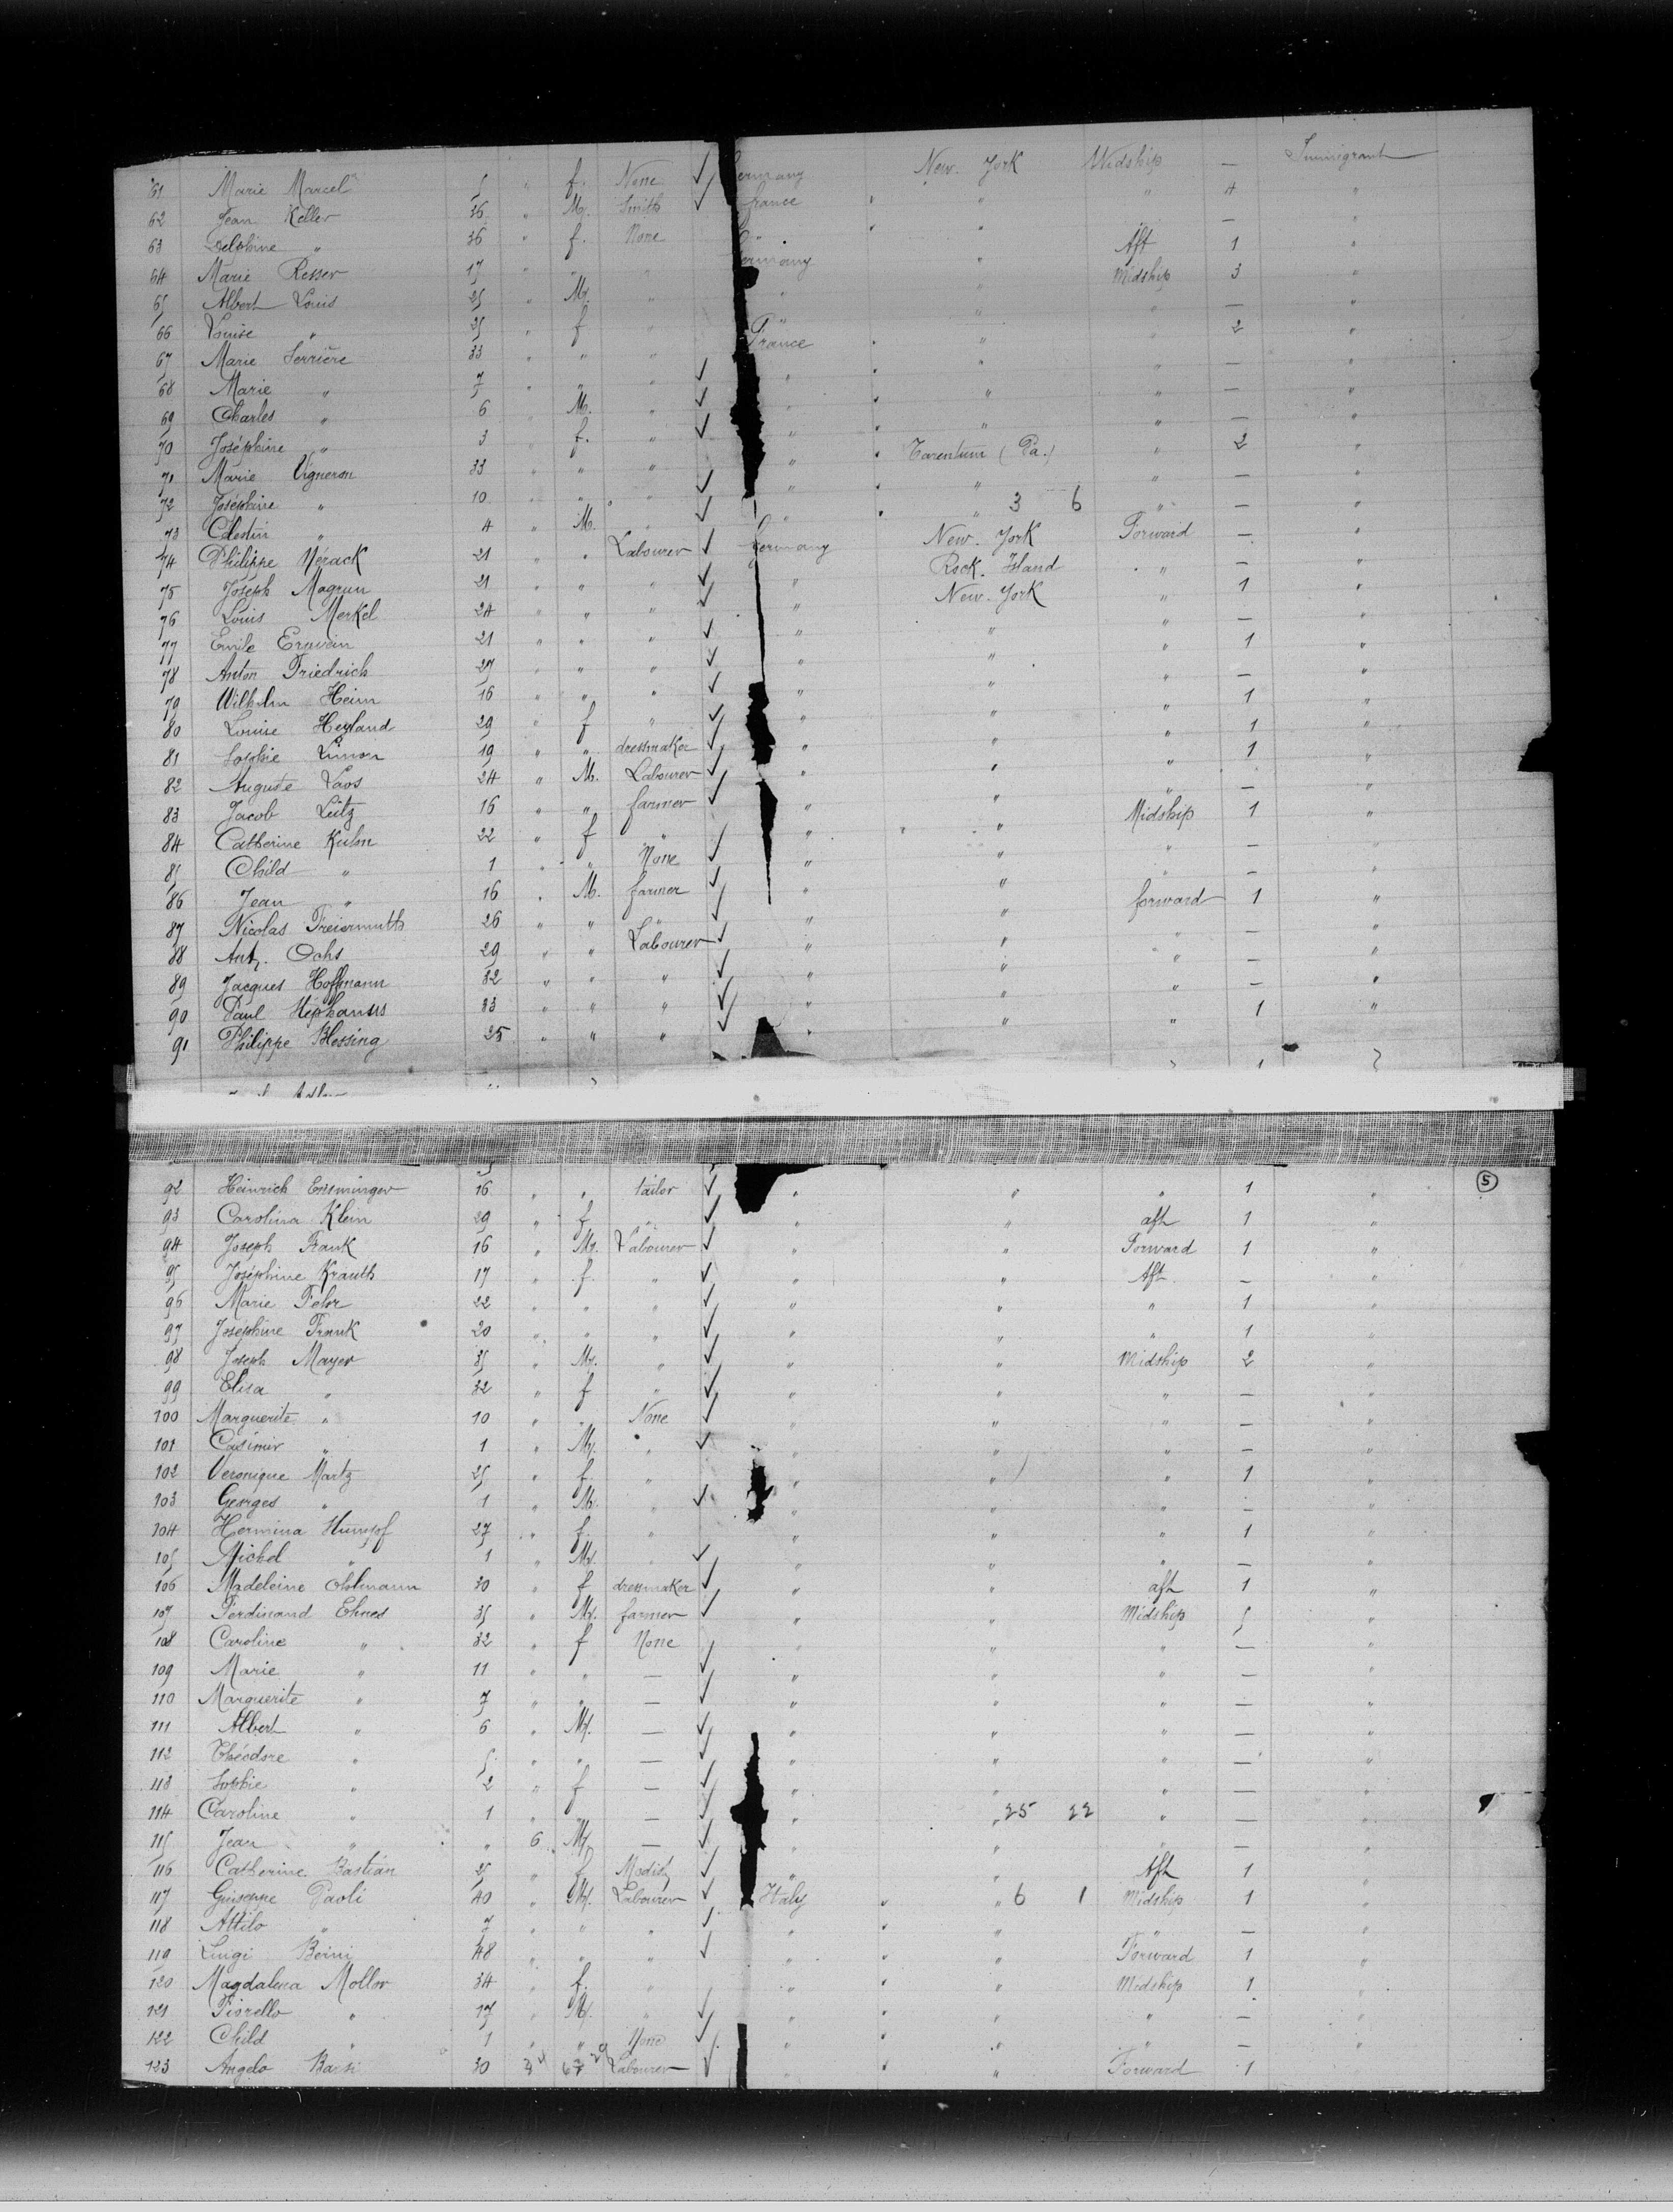 61 Marie Marcel 5 " f. None ✓ Germany New-York Midship — Immigrant
62 Jean Keller 36 " M. Smith ✓ France " " " 4 "
63 Delphine " 36 " f. None " " " — "
64 Marie Resser 17 " " " Germany " Aft 1 "
65 Albert Louis 25 " M. " " " Midship 3 "
66 Louise " 25 " f " " " " — "
67 Marie Serrière 33 " " " France " " " 2 "
68 Marie " 7 " " " ✓ " " " " — "
69 Charles " 6 " M. " ✓ " " " " — "
70 Joséphine " 3 " f. " ✓ " " " " — "
71 Marie Vigneron 33 " " " " " Tarentum (Pa.) " 2 "
72 Joséphine " 10 " " " ✓ " " " " — "
73 Celestin " 4 " M. " ✓ " " " 3 6 " — "
74 Philippe Nérack 21 " " Labourer ✓ Germany New-York Forward — "
75 Joseph Magrun 21 " " " ✓ " Rock-Island " — "
76 Louis Merkel 24 " " " ✓ " New-York " 1 "
77 Emile 21 " " " ✓ " " " — "
78 Anton Friedrich 27 " " " ✓ " " " 1 "
79 Wilhelm Heim 16 " " " ✓ " " " — "
80 Louise Heyland 29 " f " ✓ " " " 1 "
81 Sophie Simon 19 " " dressmaker ✓ " " " 1 "
82 Auguste Laos 24 " M. Labourer ✓ " " " 1 "
83 Jacob Lutz 16 " " farmer ✓ " " " — "
84 Catherine Kuhn 22 " f " " " Midship 1 "
85 Child " 1 " " None ✓ " " " — "
86 Jean " 16 " M. farmer ✓ " " " — "
87 Nicolas Freiermuth 26 " " " ✓ " " forward 1 "
88 Ant. Ochs 29 " " Labourer ✓ " " " — "
89 Jacques Hoffmann 32 " " " ✓ " " " — "
90 Paul 33 " " " ✓ " " " — "
91 Philippe Blessing 25 " " " ✓ " " " 1 "
92 Heinrich Ensminger 16 " " tailor ✓ " " " 1 " 5
93 Carolina Klein 29 " f " ✓ " " aft 1 "
94 Joseph Frank 16 " M. Labourer ✓ " " Forward 1 "
95 Joséphine Krauth 17 " f. " ✓ " " Aft — "
96 Marie Fehr 22 " " " ✓ " " " 1 "
97 Joséphine Frank 20 " " " ✓ " " " 1 "
98 Joseph Mayer 35 " M. " ✓ " " Midship 2 "
99 Elisa " 32 " f " ✓ " " " — "
100 Marguerite " 10 " " None ✓ " " " — "
101 Casimir " 1 " M. " ✓ " " " — "
102 Veronique Martz 25 " f. " " " " 1 "
103 Georges " 1 " M. " ✓ " " " — "
104 Hermina Stumpf 27 " f. " " " " 1 "
105 Michel " 1 " M. " ✓ " " " — "
106 Madeleine Ohlmann 30 " f dressmaker ✓ " " aft 1 "
107 Ferdinand Ehnes 35 " M. farmer ✓ " " Midship 5 "
108 Caroline " 32 " f None " " " — "
109 Marie " 11 " " — ✓ " " " — "
110 Marguerite " 7 " " — ✓ " " " — "
111 Albert " 6 " M. — ✓ " " " — "
112 Théodore " 5 " " — ✓ " " " — "
113 Sophie " 2 " f — ✓ " " " — "
114 Caroline " 1 " " — ✓ " " 25 22 " — "
115 Jean " " 6 M. — ✓ " " " — "
116 Catherine Bastian 25 " f Modist ✓ " " Aft 1 "
117 Guiseppe Paoli 40 " M. Labourer ✓ Italy " " 6 1 Midship 1 "
118 Attilo " 7 " " " ✓ " " " " — "
119 Luigi Boini 48 " " " ✓ " " " Forward 1 "
120 Magdalena Mollor 34 " f. " " " " Midship 1 "
121 Fiorello " 17 " M. " ✓ " " " " — "
122 Child " 1 " " None ✓ " " " " — "
123 Angelo Barsi 30 Labourer ✓ " " " Forward 1 "